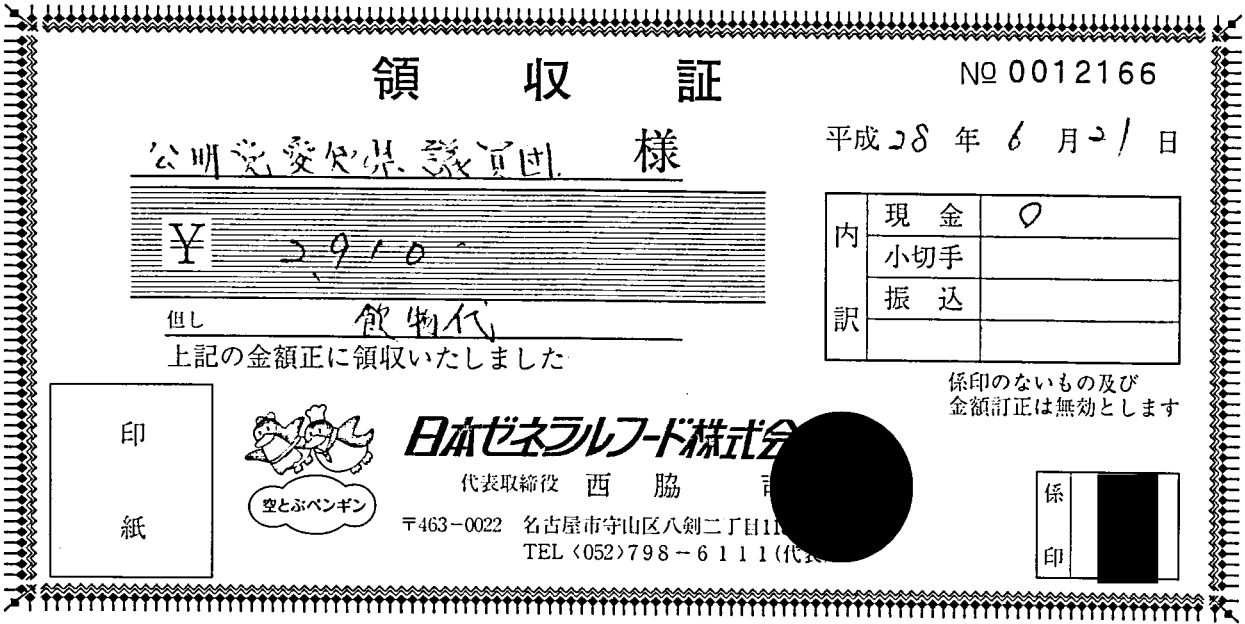 領収証
№ 0012166
平成28年6月21日
公明党愛知県議員団 様
¥ 2,910-
但し 飲物代
上記の金額正に領収いたしました
内訳
現金 0
小切手
振込
係印のないもの及び
金額訂正は無効とします
印紙
空とぶペンギン
日本ゼネラルフード株式会
代表取締役 西脇
〒463-0022 名古屋市守山区八剣二丁目11
TEL〈052〉798-6111(代表
係印